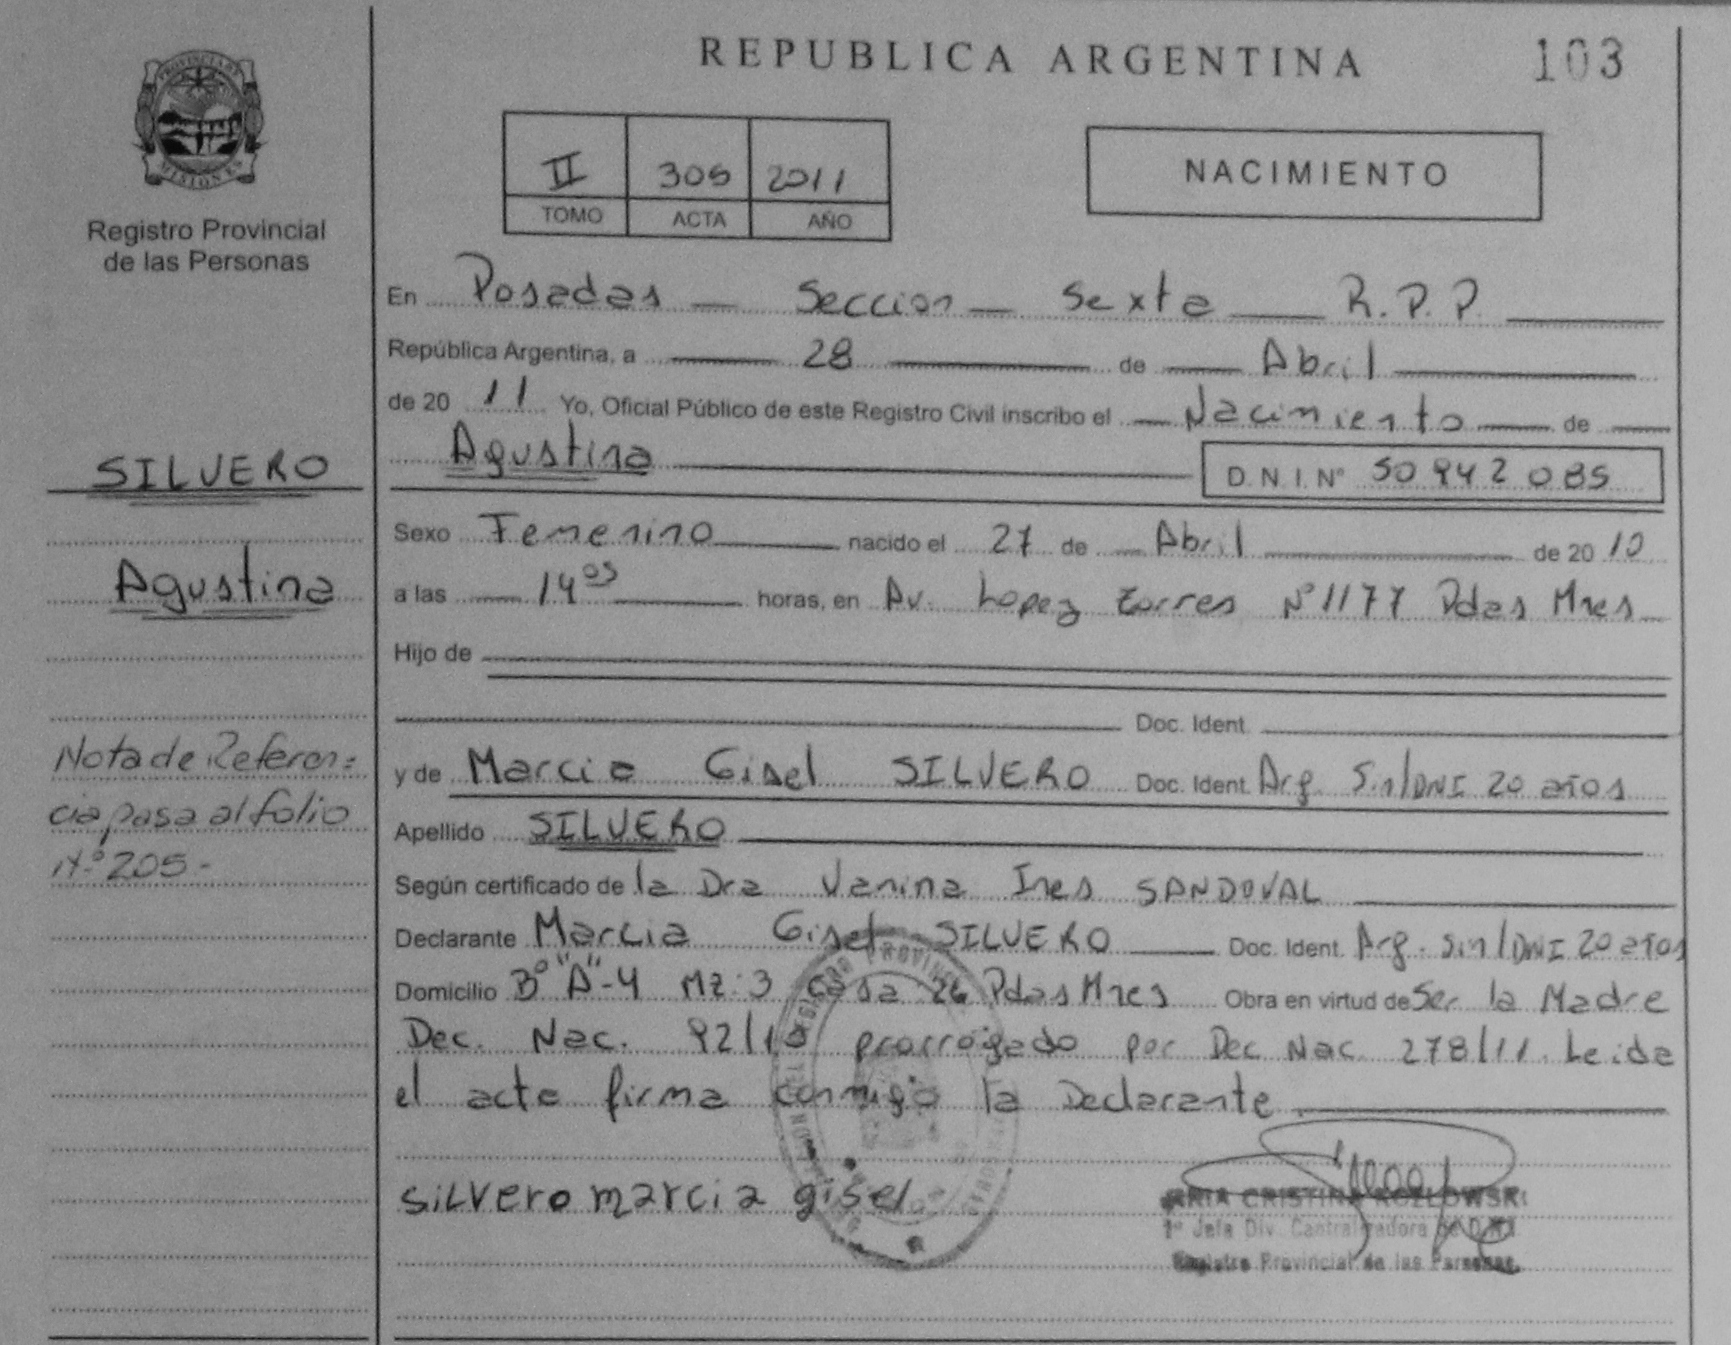 REPUBLICA ARGENTINA
103
PROVINCIA DE
MISIONES
Registro Provincial
de las Personas
II 305 2011
TOMO ACTA AÑO
NACIMIENTO
En Posadas — Seccion — Sexta — R.P.P.
República Argentina, a 28 de Abril
de 20 11 Yo, Oficial Público de este Registro Civil inscribo el Nacimiento de
Agustina D.N.I. Nº 50942085
SILVERO
Agustina
Sexo Femenino nacido el 27 de Abril de 20 10
a las 14 05 horas, en Av. Lopez Torres Nº 1177 Pdas Mnes
Hijo de
Doc. Ident.
Nota de Referen=
cia pasa al folio
Nº 205.-
y de Marcia Gisel SILVERO Doc. Ident. Arg. Sin/DNI 20 años
Apellido SILVERO
Según certificado de la Dra Vanina Ines SANDOVAL
Declarante Marcia Gisel SILVERO Doc. Ident. Arg. Sin/DNI 20 años
Domicilio Bº "A"-4 Mz: 3 Casa 26 Pdas Mnes Obra en virtud de Ser la Madre
Dec. Nac. 92/10 prorrogado por Dec Nac. 278/11. Leida
el acta firma conmigo la Declarante
silvero marcia gisel
CRISTINA KOZLOWSKI
1ª Jefa Div. Centralizadora de D.N.I.
Registro Provincial de las Personas